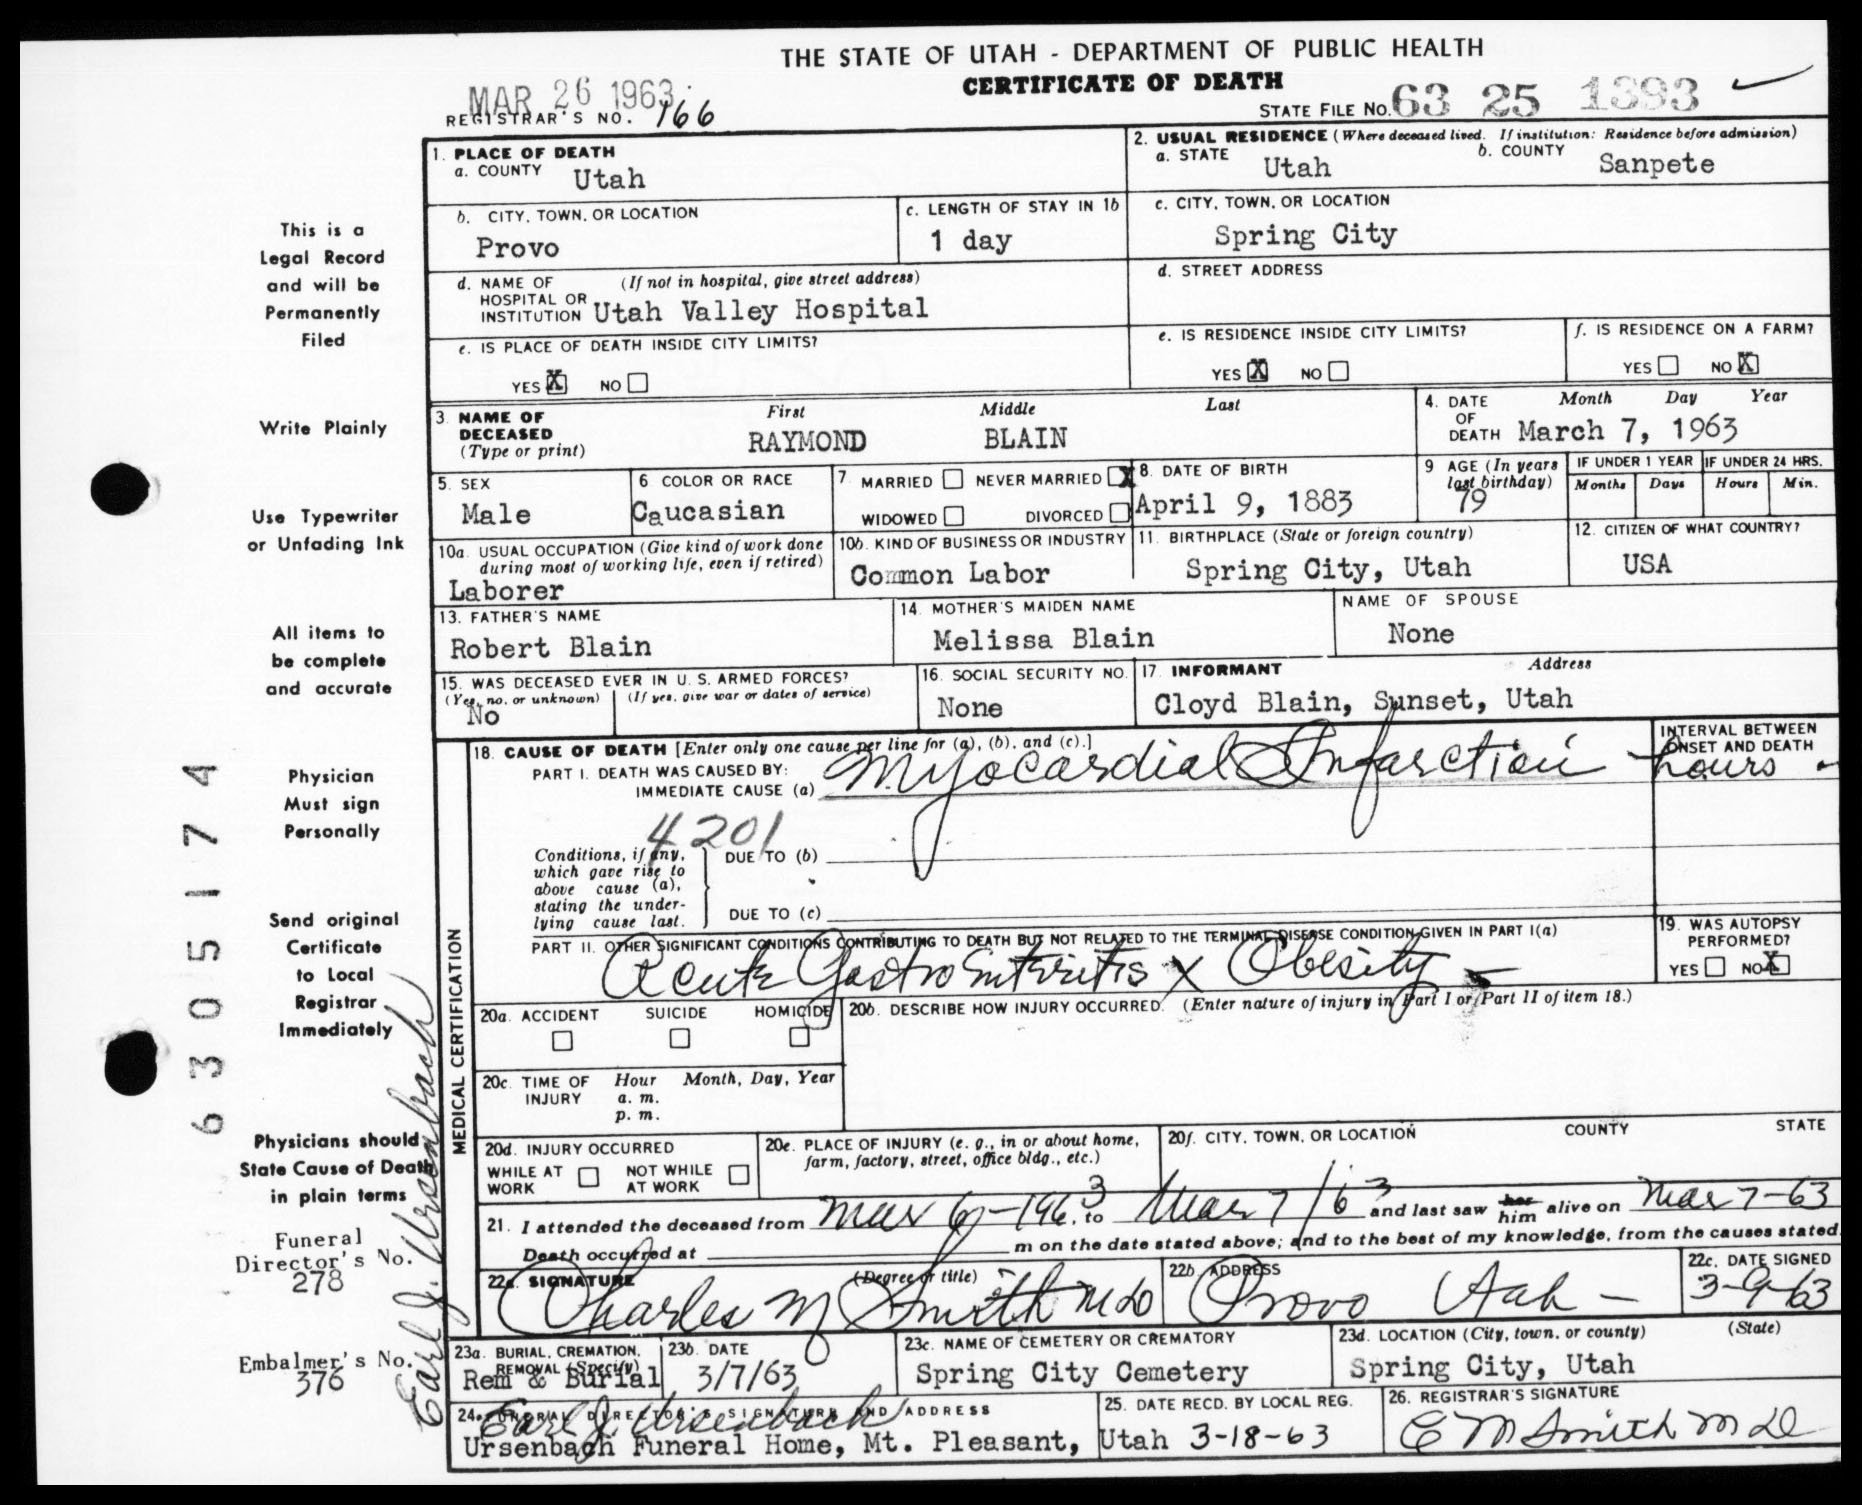 THE STATE OF UTAH - DEPARTMENT OF PUBLIC HEALTH
CERTIFICATE OF DEATH
MAR 26 1963
REGISTRAR'S NO. 166
STATE FILE NO. 63 25 1393
1. PLACE OF DEATH
a. COUNTY Utah
2. USUAL RESIDENCE (Where deceased lived. If institution: Residence before admission)
a. STATE Utah b. COUNTY Sanpete
b. CITY, TOWN, OR LOCATION
Provo
c. LENGTH OF STAY IN 1b
1 day
c. CITY, TOWN, OR LOCATION
Spring City
d. NAME OF HOSPITAL OR INSTITUTION (If not in hospital, give street address)
Utah Valley Hospital
d. STREET ADDRESS
e. IS PLACE OF DEATH INSIDE CITY LIMITS?
YES X NO
e. IS RESIDENCE INSIDE CITY LIMITS?
YES X NO
f. IS RESIDENCE ON A FARM?
YES NO X
3. NAME OF DECEASED (Type or print)
First Middle Last
RAYMOND BLAIN
4. DATE OF DEATH Month Day Year
March 7, 1963
5. SEX
Male
6 COLOR OR RACE
Caucasian
7. MARRIED NEVER MARRIED X
WIDOWED DIVORCED
8. DATE OF BIRTH
April 9, 1883
9 AGE (In years last birthday)
79
IF UNDER 1 YEAR IF UNDER 24 HRS.
Months Days Hours Min.
10a. USUAL OCCUPATION (Give kind of work done during most of working life, even if retired)
Laborer
10b. KIND OF BUSINESS OR INDUSTRY
Common Labor
11. BIRTHPLACE (State or foreign country)
Spring City, Utah
12. CITIZEN OF WHAT COUNTRY?
USA
13. FATHER'S NAME
Robert Blain
14. MOTHER'S MAIDEN NAME
Melissa Blain
NAME OF SPOUSE
None
15. WAS DECEASED EVER IN U. S. ARMED FORCES?
(Yes, no, or unknown) (If yes, give war or dates of service)
No
16. SOCIAL SECURITY NO.
None
17. INFORMANT Address
Cloyd Blain, Sunset, Utah
MEDICAL CERTIFICATION
18. CAUSE OF DEATH [Enter only one cause per line for (a), (b), and (c).]
PART I. DEATH WAS CAUSED BY:
IMMEDIATE CAUSE (a) Myocardial Infarction
INTERVAL BETWEEN ONSET AND DEATH
hours
4201
Conditions, if any, which gave rise to above cause (a), stating the underlying cause last.
DUE TO (b)
DUE TO (c)
PART II. OTHER SIGNIFICANT CONDITIONS CONTRIBUTING TO DEATH BUT NOT RELATED TO THE TERMINAL DISEASE CONDITION GIVEN IN PART I(a)
Acute Gastro Enteritis x Obesity -
19. WAS AUTOPSY PERFORMED?
YES NO X
20a. ACCIDENT SUICIDE HOMICIDE
20b. DESCRIBE HOW INJURY OCCURRED. (Enter nature of injury in Part I or Part II of item 18.)
20c. TIME OF INJURY Hour Month, Day, Year
a. m.
p. m.
20d. INJURY OCCURRED
WHILE AT WORK NOT WHILE AT WORK
20e. PLACE OF INJURY (e. g., in or about home, farm, factory, street, office bldg., etc.)
20f. CITY, TOWN, OR LOCATION COUNTY STATE
21. I attended the deceased from Mar 6-1963, to Mar 7/63 and last saw her him alive on Mar 7-63
Death occurred at m on the date stated above; and to the best of my knowledge, from the causes stated
22a. SIGNATURE (Degree or title)
Charles M Smith MD
22b. ADDRESS
Provo Utah -
22c. DATE SIGNED
3-9-63
23a. BURIAL, CREMATION, REMOVAL (Specify)
Rem & Burial
23b. DATE
3/7/63
23c. NAME OF CEMETERY OR CREMATORY
Spring City Cemetery
23d. LOCATION (City, town, or county) (State)
Spring City, Utah
24. FUNERAL DIRECTOR'S SIGNATURE AND ADDRESS
Earl J. Ursenbach
Ursenbach Funeral Home, Mt. Pleasant, Utah
25. DATE RECD. BY LOCAL REG.
3-18-63
26. REGISTRAR'S SIGNATURE
E M Smith MD
This is a
Legal Record
and will be
Permanently
Filed
Write Plainly
Use Typewriter
or Unfading Ink
All items to
be complete
and accurate
Physician
Must sign
Personally
Send original
Certificate
to Local
Registrar
Immediately
Physicians should
State Cause of Death
in plain terms
Funeral
Director's No.
278
Embalmer's No.
376
6305174
Earl J. Ursenbach